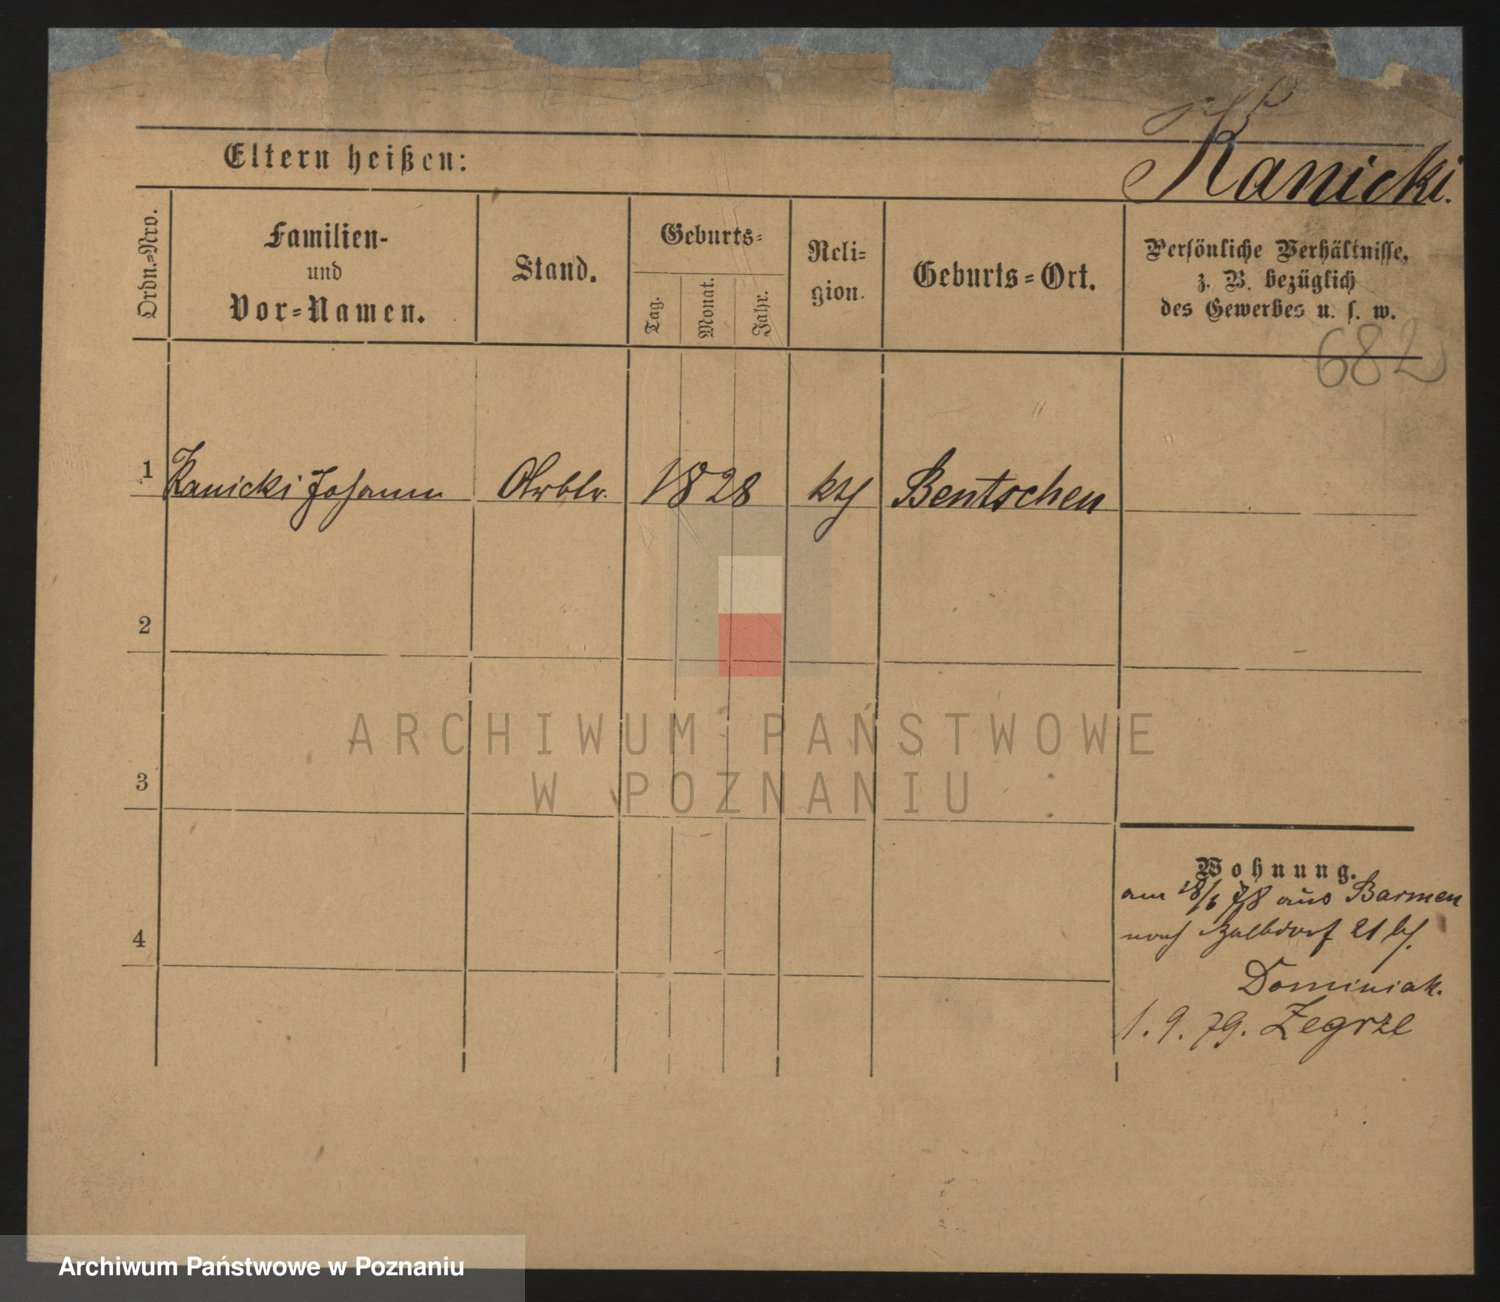 Kanicki.
Eltern heißen:
Ordn.=Nro.
Familien-
und
Vor=Namen.
Stand.
Geburts=
Tag.
Monat.
Jahr.
Reli=
gion.
Geburts=Ort.
Persönliche Verhältnisse,
z. B. bezüglich
des Gewerbes u. s. w.
682
1 Kanicki Johann 1828 Bentschen
2
3
4
Wohnung.
am 18/6 78 aus Barmen
nach 21
Dominiak.
1. 9. 79. Zegrze
ARCHIWUM PAŃSTWOWE
W POZNANIU
Archiwum Państwowe w Poznaniu